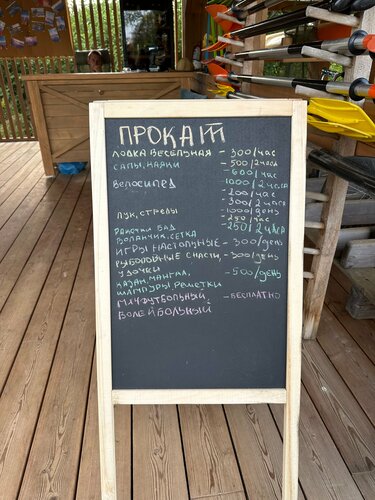 ПРОКАТ
ЛОДКА ВЕСЕЛЬНАЯ - 300/ЧАС
- 500/2 ЧАСА
САПЫ, КАЯКИ - 600/ЧАС
- 1000/2 ЧАСА
ВЕЛОСИПЕД - 200/ЧАС
- 300/2 ЧАСА
- 1000/ДЕНЬ
ЛУК, СТРЕЛЫ - 250/ЧАС
РАКЕТКИ БАД - 250/2 ЧАСА
ВОЛАНЧИК, СЕТКА
ИГРЫ НАСТОЛЬНЫЕ - 300/ДЕНЬ
РЫБОЛОВНЫЕ СНАСТИ, - 300/ДЕНЬ
УДОЧКИ
КАЗАН, МАНГАЛ, - 500/ДЕНЬ
ШАМПУРЫ, РЕШЕТКИ
МЯЧ ФУТБОЛЬНЫЙ, - БЕСПЛАТНО
ВОЛЕЙБОЛЬНЫЙ